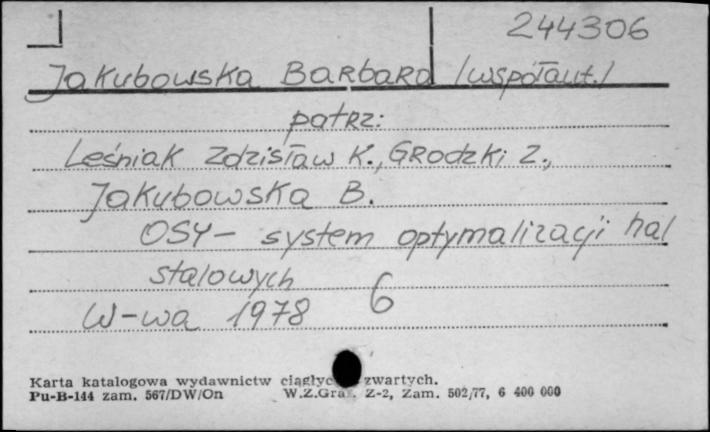 244306
Jakubowska Barbara /współaut./
patrz:
Leśniak Zdzisław K., Grodzki Z.,
Jakubowska B.
OSY - system optymalizacji hal
stalowych
W-wa 1978 6
Karta katalogowa wydawnictw ciągłyc zwartych.
Pu-B-144 zam. 567/DW/On W.Z.Graf. Z-2, Zam. 502/77, 6 400 000